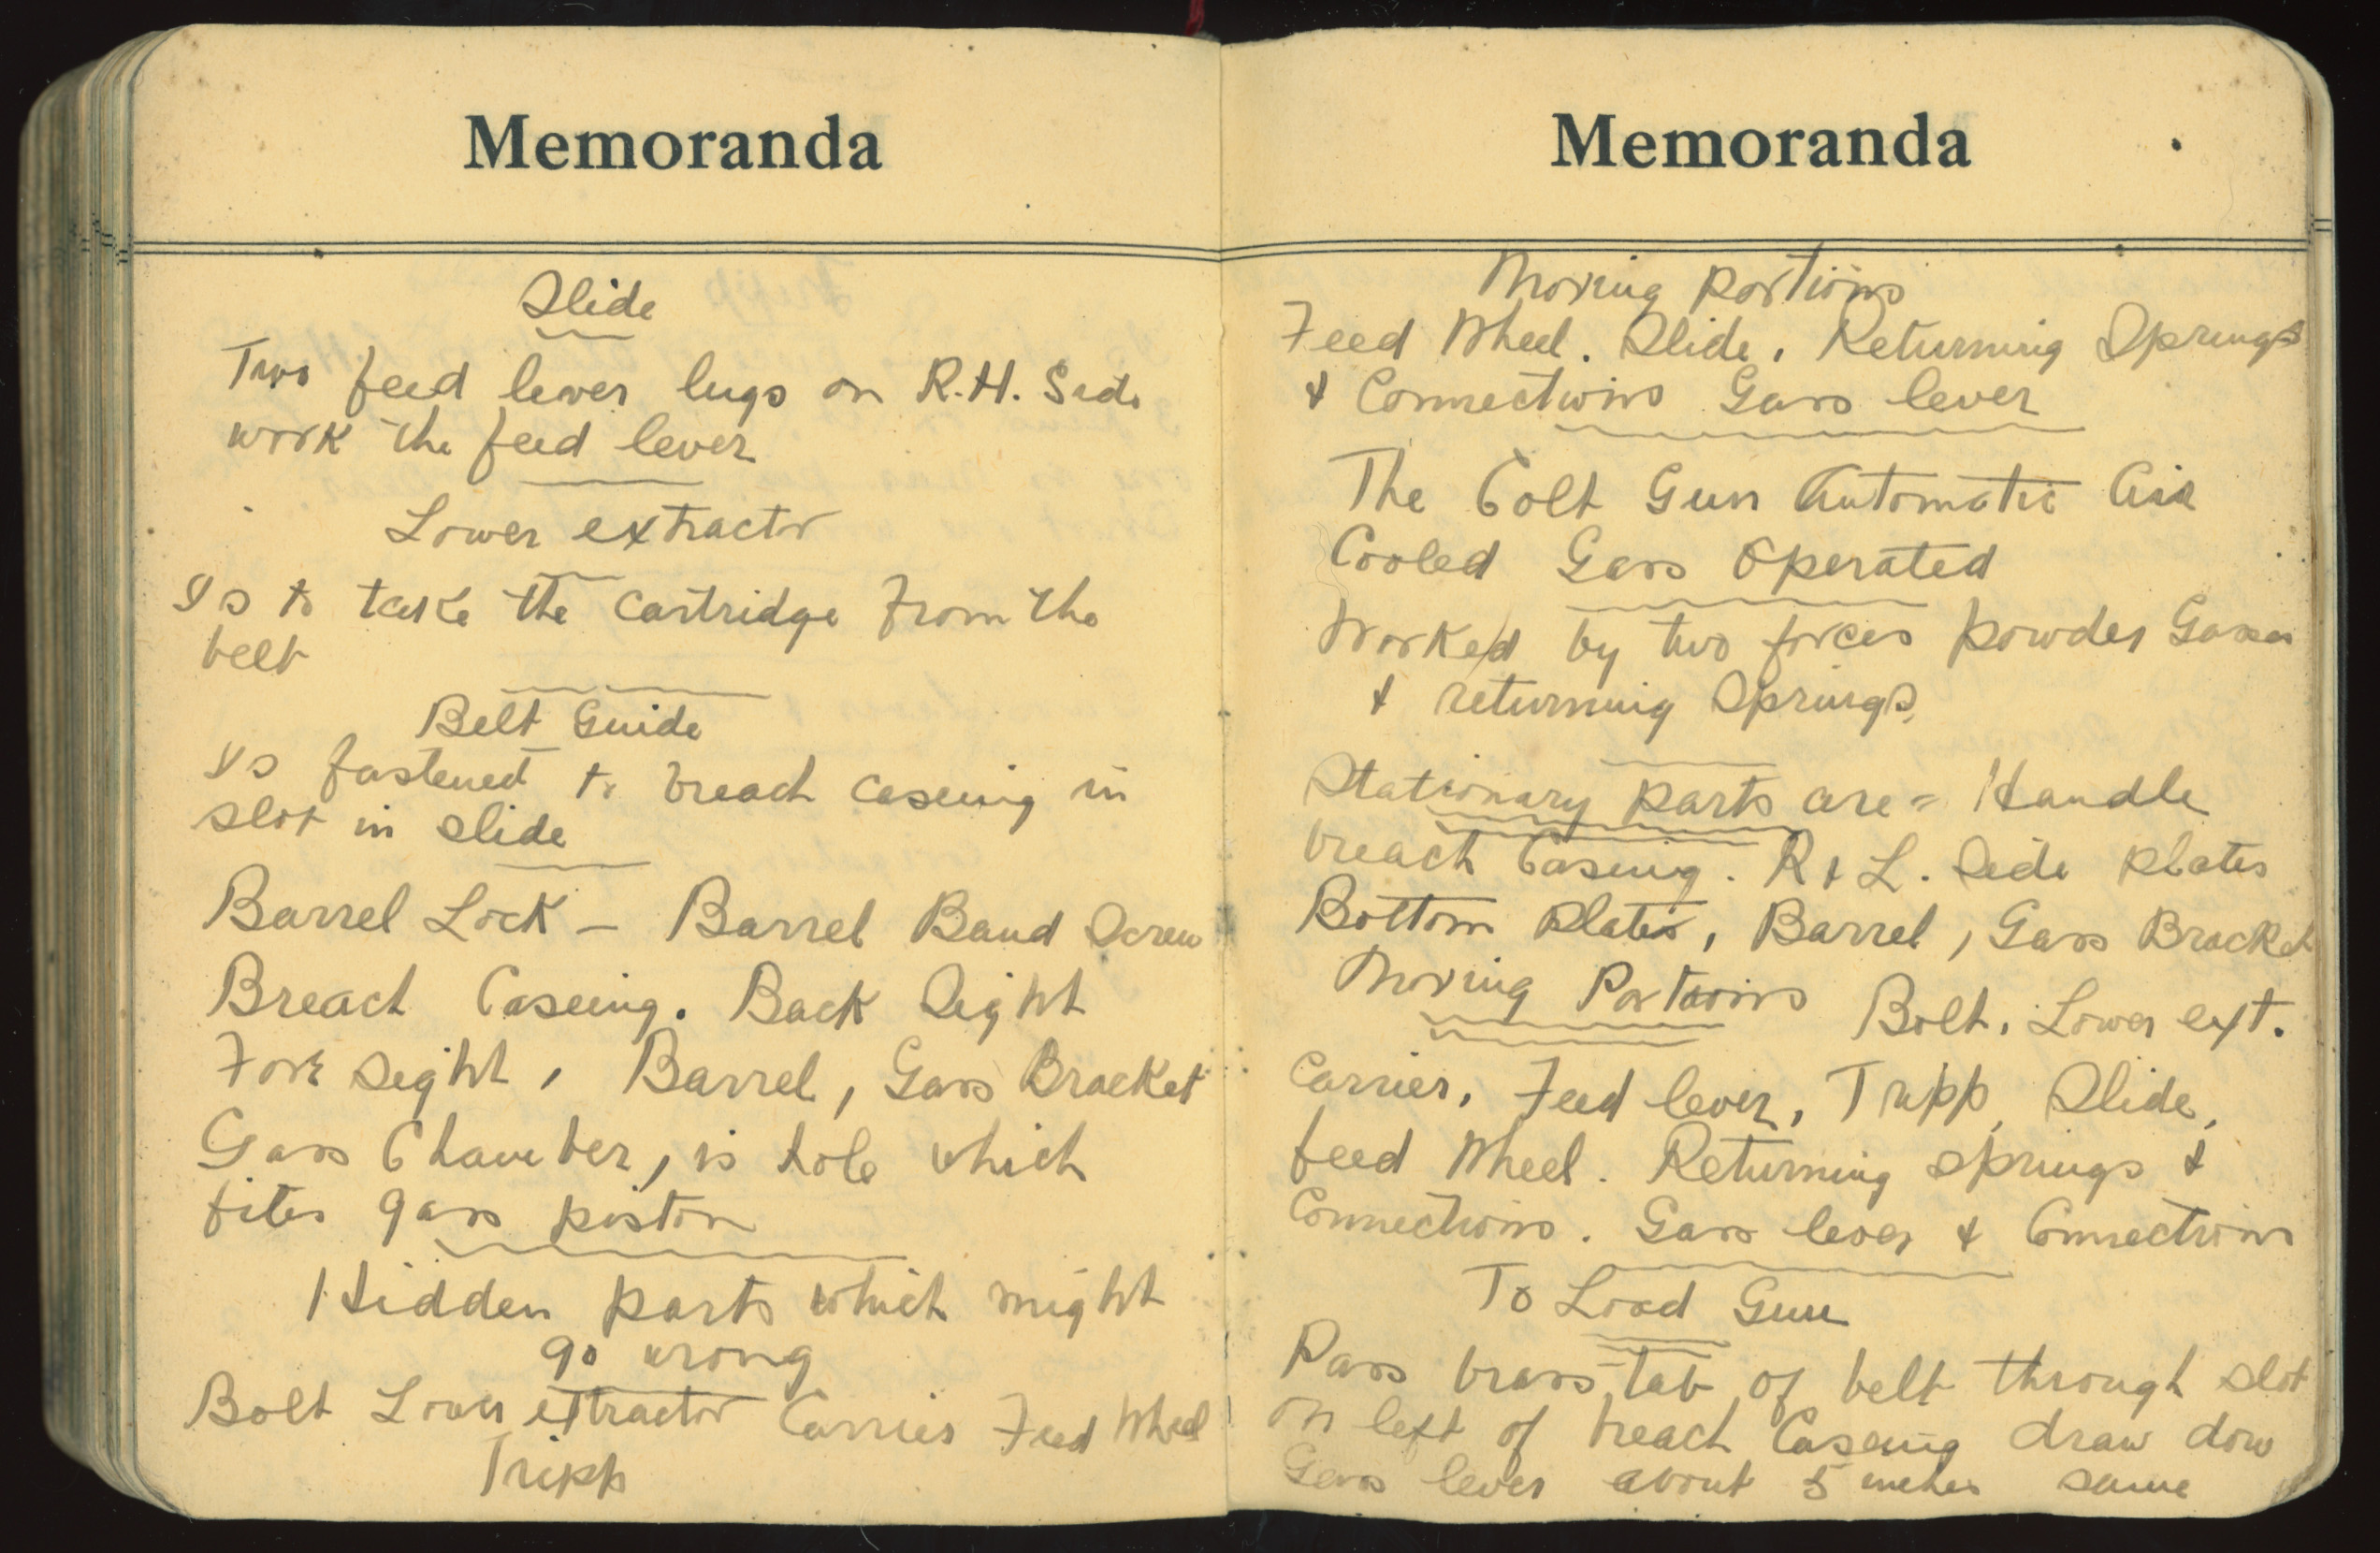 Memoranda
Slide
Two feed lever lugs on R.H. Side
work the feed lever
Lower extractor
Is to take the cartridge from the
belt
Belt Guide
Is fastened to breach caseing in
slot in slide
Barrel Lock - Barrel Band Screw
Breach Caseing. Back Sight
Fore Sight, Barrel, Gass Bracket
Gass Chamber, is hole which
fites gass piston
Hidden parts which might
go wrong
Bolt Lower extractor Carrier Feed Wheel
Tripp
Memoranda
Moving portions
Feed Wheel. Slide. Returning Springs
& Connections Gass lever
The Colt Gun Automatic Air
Cooled Gass Operated
Worked by two forces powder Gasses
& returning Springs,
Stationary parts are = Handle
breach Caseing. R & L. Side plates
Bottom plates, Barrel, Gass Bracket
Moving Portions Bolt. Lower ext.
Carrier, Feed lever, Tripp, Slide,
feed Wheel. Returning springs &
Connections. Gass lever & Connections
To Load Gun
Pass brass tab of belt through slot
on left of breach Caseing draw dow
Gass lever about 5 inches same